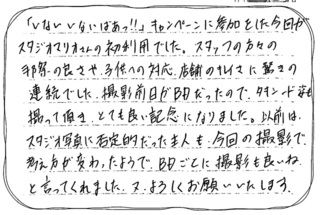 「いないいないばあっ!!」キャンペーンに参加した今回が
スタジオマリオさんの初利用でした。スタッフの方々の
手際の良さや、子供への対応、店舗のキレイさに驚きの
連続でした。撮影前日がBDだったので、タキシード姿も
撮って頂き、とても良い記念になりました。以前は、
スタジオ写真に否定的だった主人も、今回の撮影で
考え方が変わったようで、BDごとに撮影も良いね
と言ってくれました。又、よろしくお願いいたします。